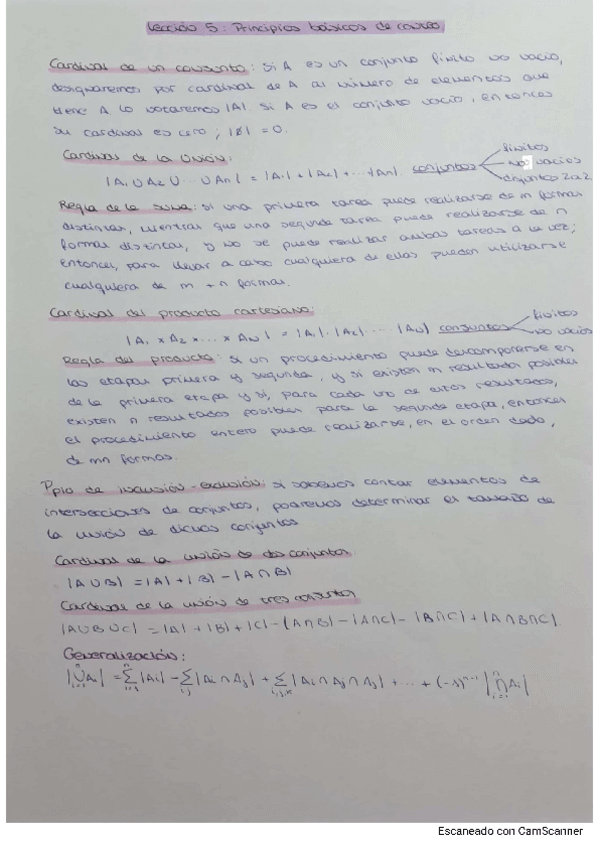 Lección 5: Principios básicos de conteo
Cardinal de un conjunto: si A es un conjunto finito no vacío,
designaremos por cardinal de A al número de elementos que
tiene A lo notaremos |A|. Si A es el conjunto vacío, entonces
su cardinal es cero; |∅| = 0.
Cardinal de la Unión:
|A₁ ∪ A₂ ∪ ... ∪ Aₙ| = |A₁| + |A₂| + ... + |Aₙ|. conjuntos finitos
no vacíos
disjuntos 2a2
Regla de la suma: si una primera tarea puede realizarse de m formas
distintas, mientras que una segunda tarea puede realizarse de n
formas distintas, y no se puede realizar ambas tareas a la vez;
entonces, para llevar a cabo cualquiera de ellas pueden utilizarse
cualquiera de m + n formas.
Cardinal del producto cartesiano:
|A₁ x A₂ x ... x Aₙ| = |A₁|·|A₂|... |Aₙ| conjuntos finitos
no vacíos
Regla del producto: si un procedimiento puede descomponerse en
las etapas primera y segunda, y si existen m resultados posibles
de la primera etapa y si, para cada uno de estos resultados,
existen n resultados posibles para la segunda etapa, entonces
el procedimiento entero puede realizarse, en el orden dado,
de mn formas.
Ppio de inclusión-exclusión: si sabemos contar elementos de
intersecciones de conjuntos, podremos determinar el tamaño de
la unión de dichos conjuntos
Cardinal de la unión de dos conjuntos
|A∪B| = |A| + |B| - |A∩B|
Cardinal de la unión de tres conjuntos
|A∪B∪C| = |A| + |B| + |C| - |A∩B| - |A∩C| - |B∩C| + |A∩B∩C|
Generalización:
|⋃ⁿᵢ₌₁ Aᵢ| = ∑ⁿᵢ₌₁ |Aᵢ| - ∑ᵢ,ⱼ |Aᵢ ∩ Aⱼ| + ∑ᵢ,ⱼ,ₖ |Aᵢ ∩ Aⱼ ∩ Aⱼ| + ... + (-1)ⁿ⁻¹ |⋂ⁿᵢ₌₁ Aᵢ|
Escaneado con CamScanner